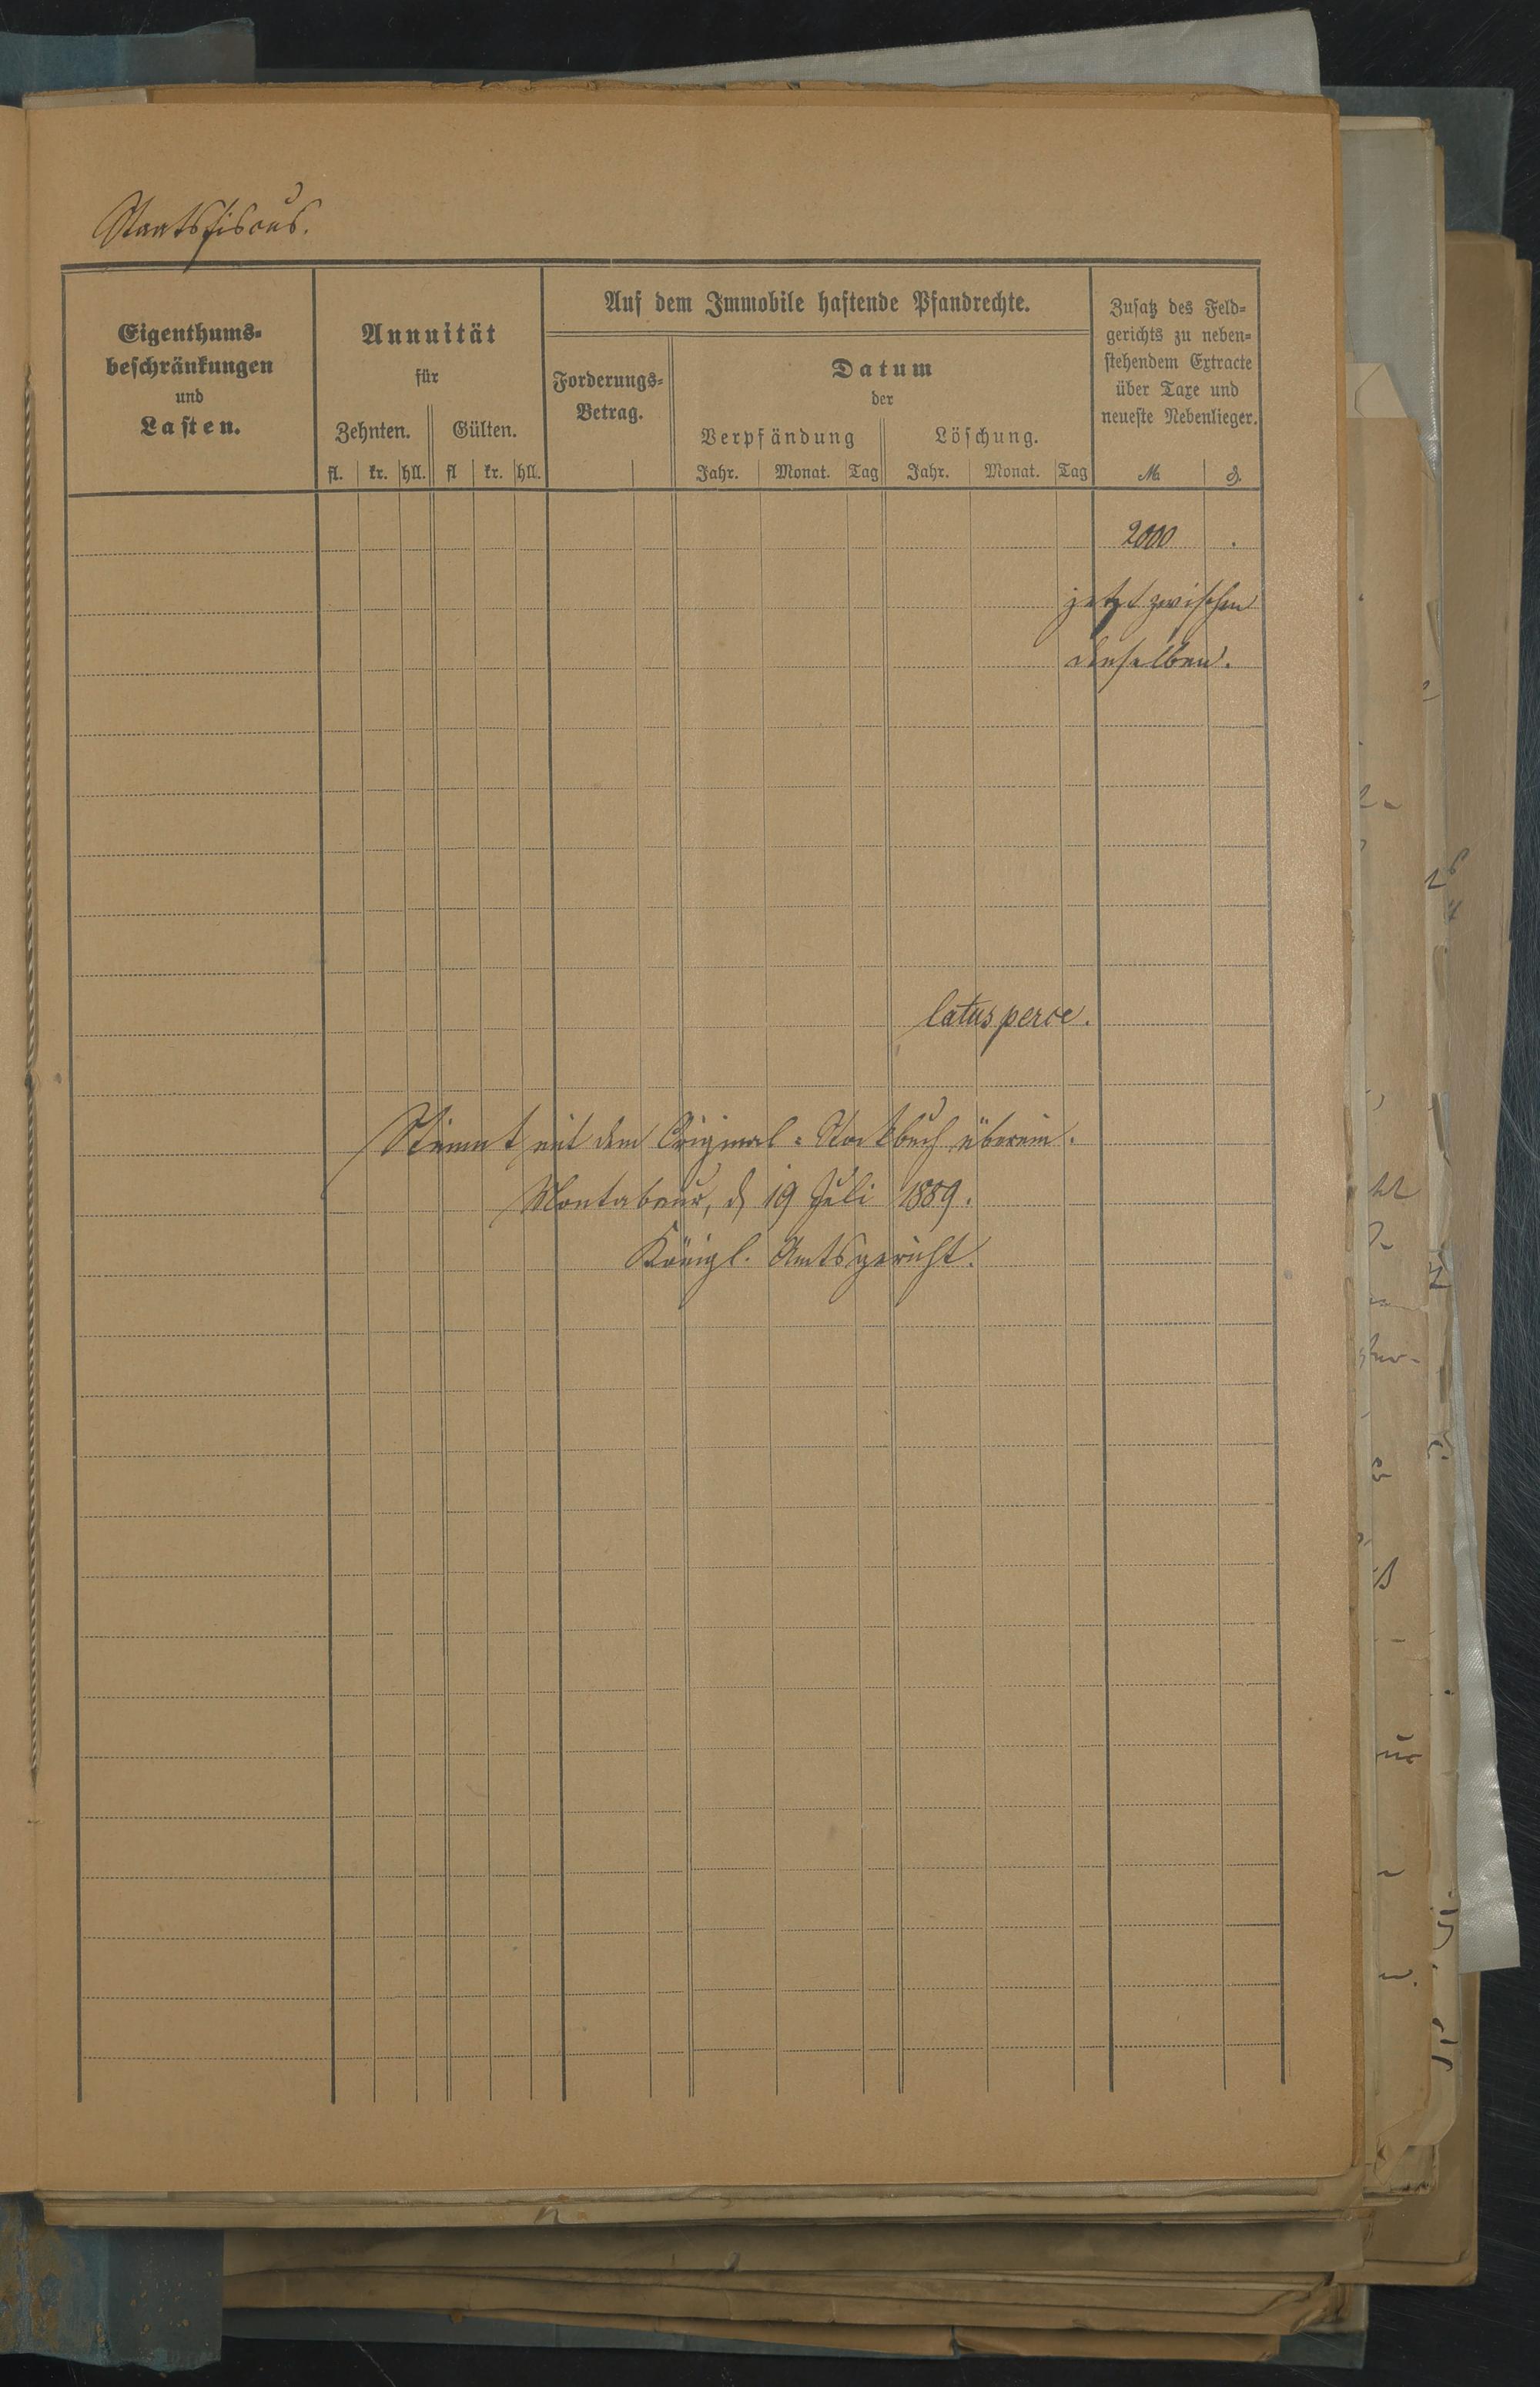 Staatsfiscus.
Eigenthums-
beschränkungen
und
Lasten.
Annuität
für
Zehnten. Gülten.
fl. kr. hll. fl kr. hll.
Auf dem Immobile haftende Pfandrechte.
Forderungs-
Betrag.
Datum
der
Verpfändung Löschung.
Jahr. Monat. Tag Jahr. Monat. Tag
Zusatz des Feld-
gerichts zu neben-
stehendem Extracte
über Taxe und
neueste Nebenlieger.
M. ₰.
2000 .
jetzt zwischen
denselben.
latus perce.
Stimmt mit dem Original-Stockbuch überein.
Montabaur, d 19 Juli 1889.
Königl. Amtsgericht.